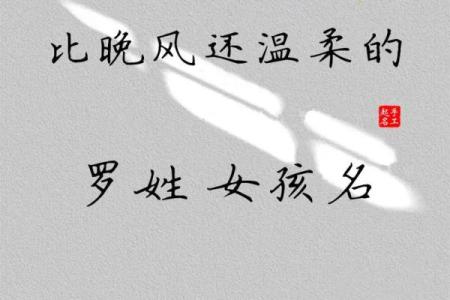 比晚风还温柔的
手工
起名
罗姓女孩名